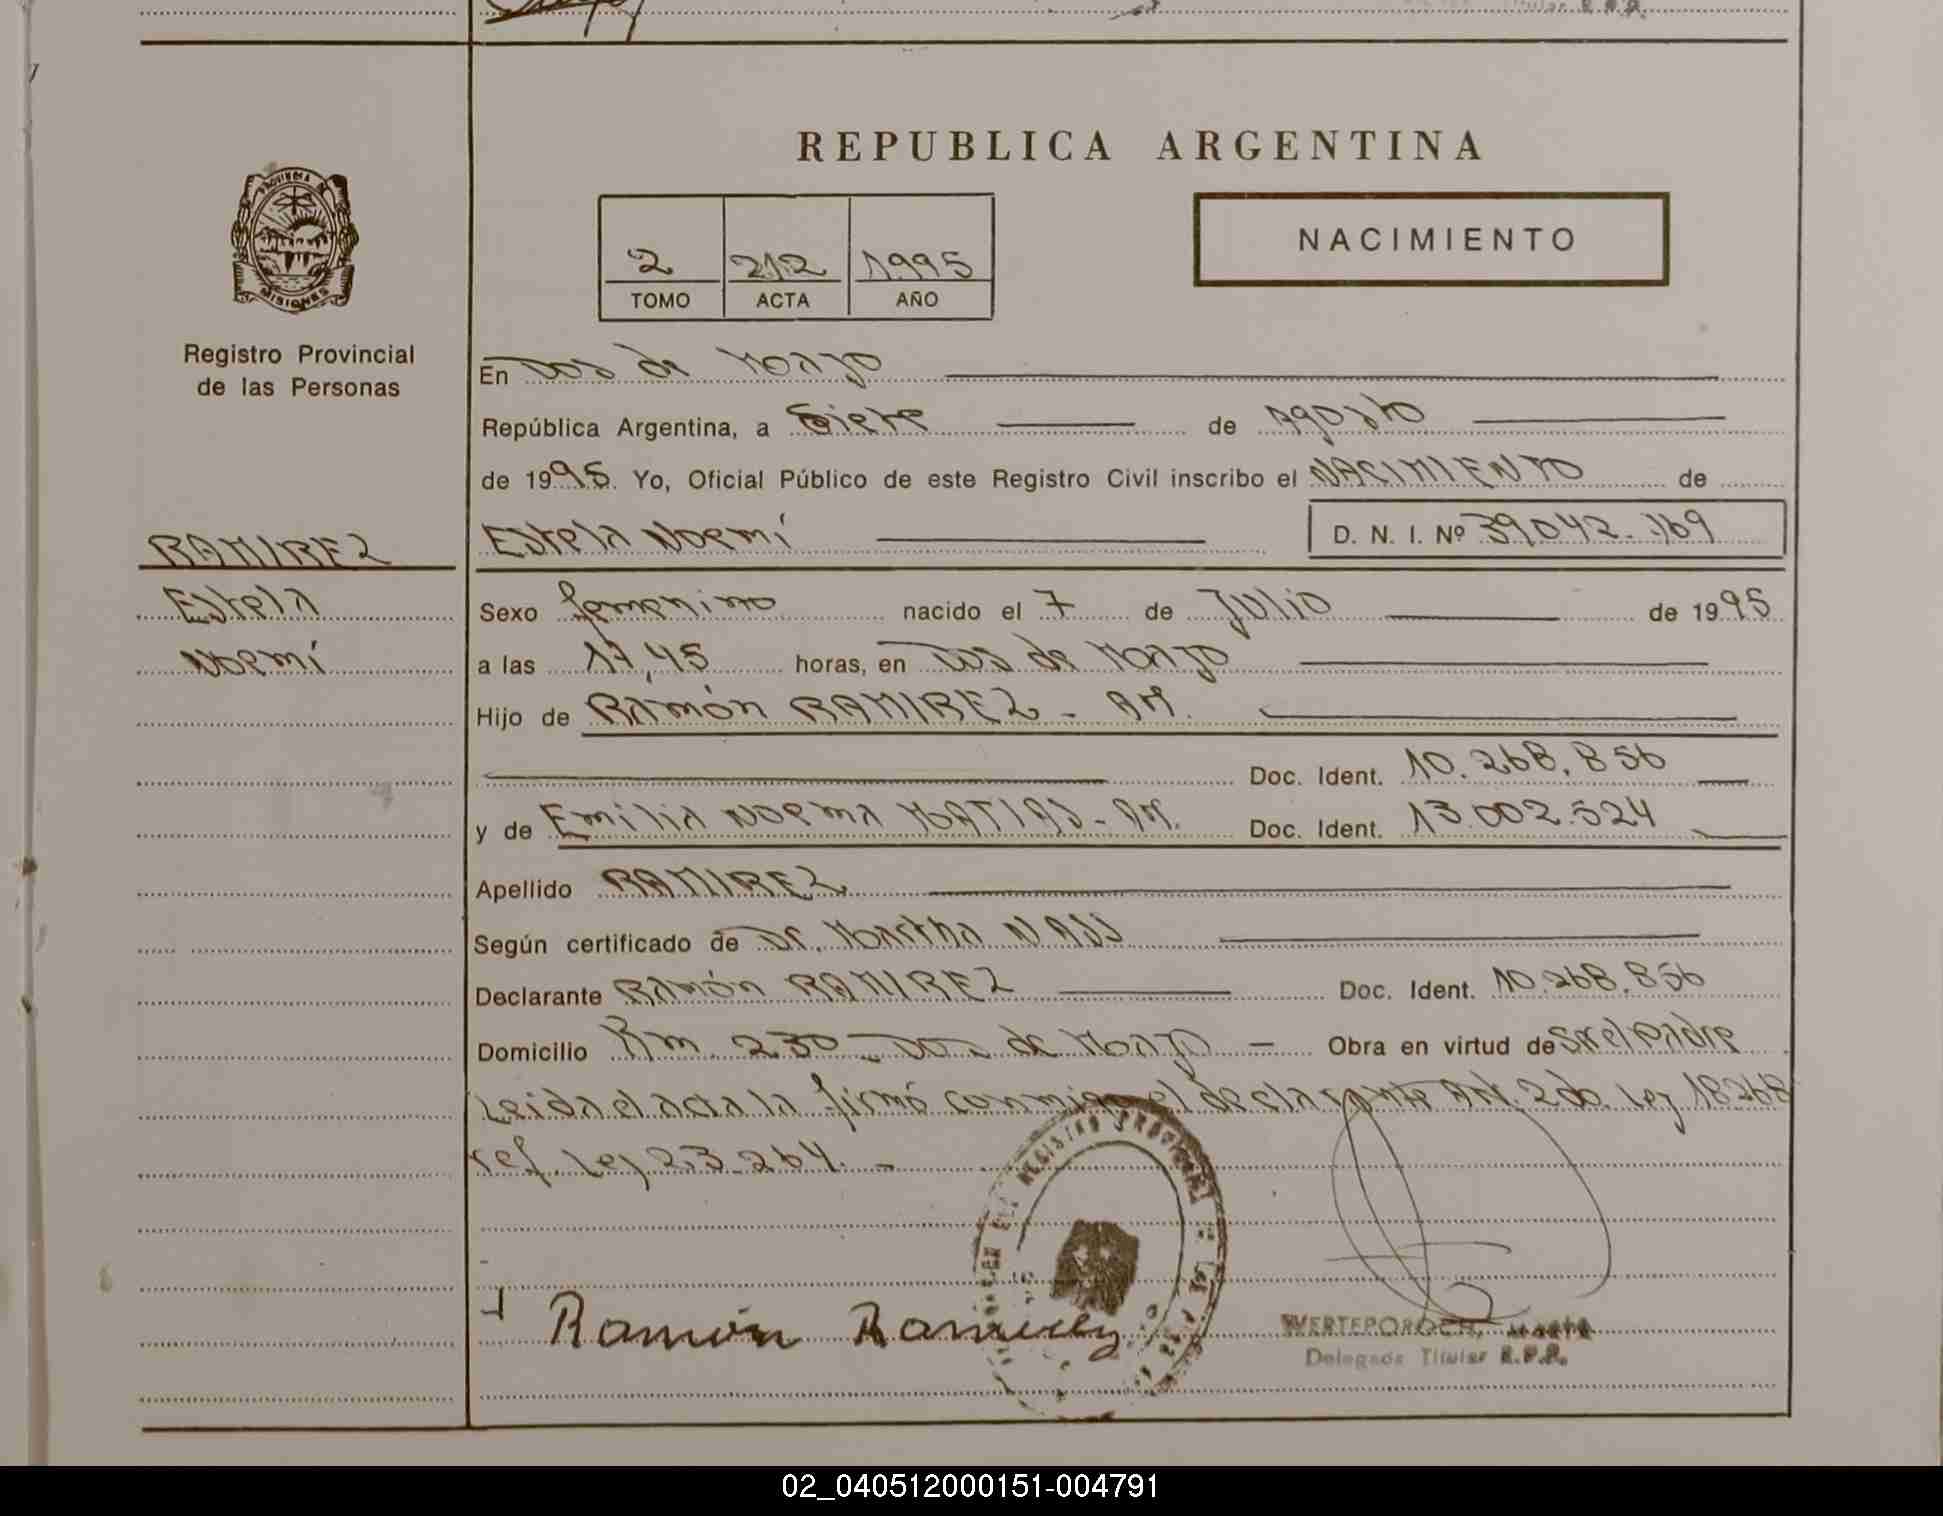 REPUBLICA ARGENTINA
PROVINCIA DE
MISIONES
Registro Provincial
de las Personas
NACIMIENTO
2 212 1995
TOMO ACTA AÑO
En Dos de Mayo
República Argentina, a Siete de Agosto
de 1995. Yo, Oficial Público de este Registro Civil inscribo el NACIMIENTO de
RAMIREZ
Estela Noemí D. N. I. Nº 39042.169
Estela
Noemí
Sexo femenino nacido el 7 de Julio de 1995
a las 17,45 horas, en Dos de Mayo
Hijo de Ramón RAMIREZ - AM.
Doc. Ident. 10.268.856
y de Emilia Noema MATIAS - AM. Doc. Ident. 13.002.524
Apellido RAMIREZ
Según certificado de Dr. Martha
Declarante Ramón RAMIREZ Doc. Ident. 10.268.856
Domicilio Km. 230 - Dos de Mayo - Obra en virtud de Ser el Padre
Leida el acta la firmó conmigo el declarante Art. 2do. Ley 18268
ref. Ley 23.264. -
REGISTRO PROVINCIAL
Ramón Ramirez
Delegada Titular R.P.P.
02_040512000151-004791